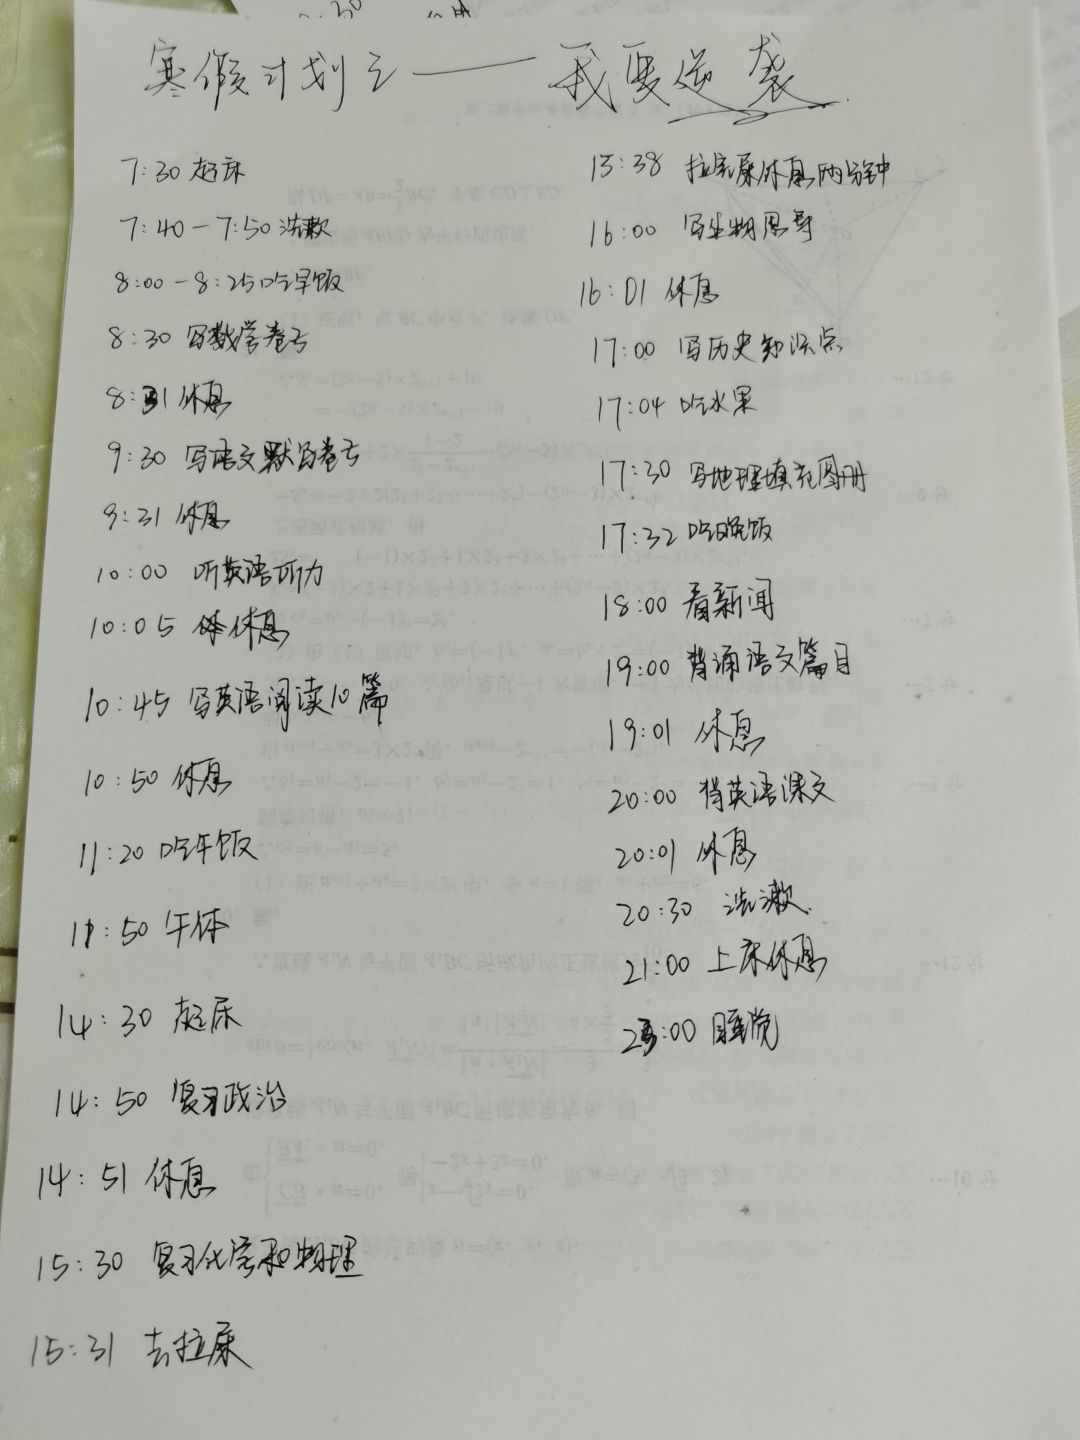 寒假计划之——我要逆袭
7:30 起床
7:40-7:50 洗漱
8:00-8:25 吃早饭
8:30 写数学卷子
8:31 休息
9:30 写语文默写卷子
9:31 休息
10:00 听英语听力
10:05 休息
10:45 写英语阅读10篇
10:50 休息
11:20 吃午饭
11:50 午休
14:30 起床
14:50 复习政治
14:51 休息
15:30 复习化学和物理
15:31 去拉屎
15:38 拉完屎休息两分钟
16:00 写生物思导
16:01 休息
17:00 写历史知识点
17:04 吃水果
17:30 写地理填充图册
17:32 吃晚饭
18:00 看新闻
19:00 背诵语文篇目
19:01 休息
20:00 背英语课文
20:01 休息
20:30 洗漱
21:00 上床休息
23:00 睡觉